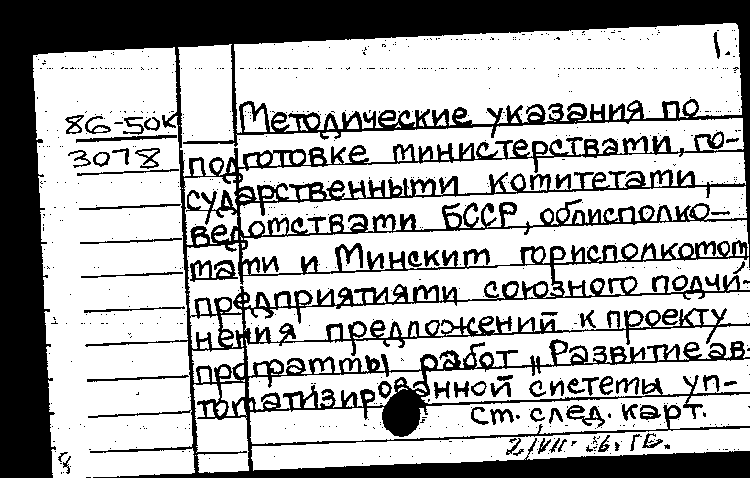 1.
86-50к
3078
Методические указания по
подготовке министерствами, го-
сударственными комитетами,
ведомствами БССР, облисполко-
мами и Минским горисполкомом
предприятиями союзного подчи-
нения предложений к проекту
программы работ „Развитие ав-
томатизированной системы уп-
ст. след. карт.
8